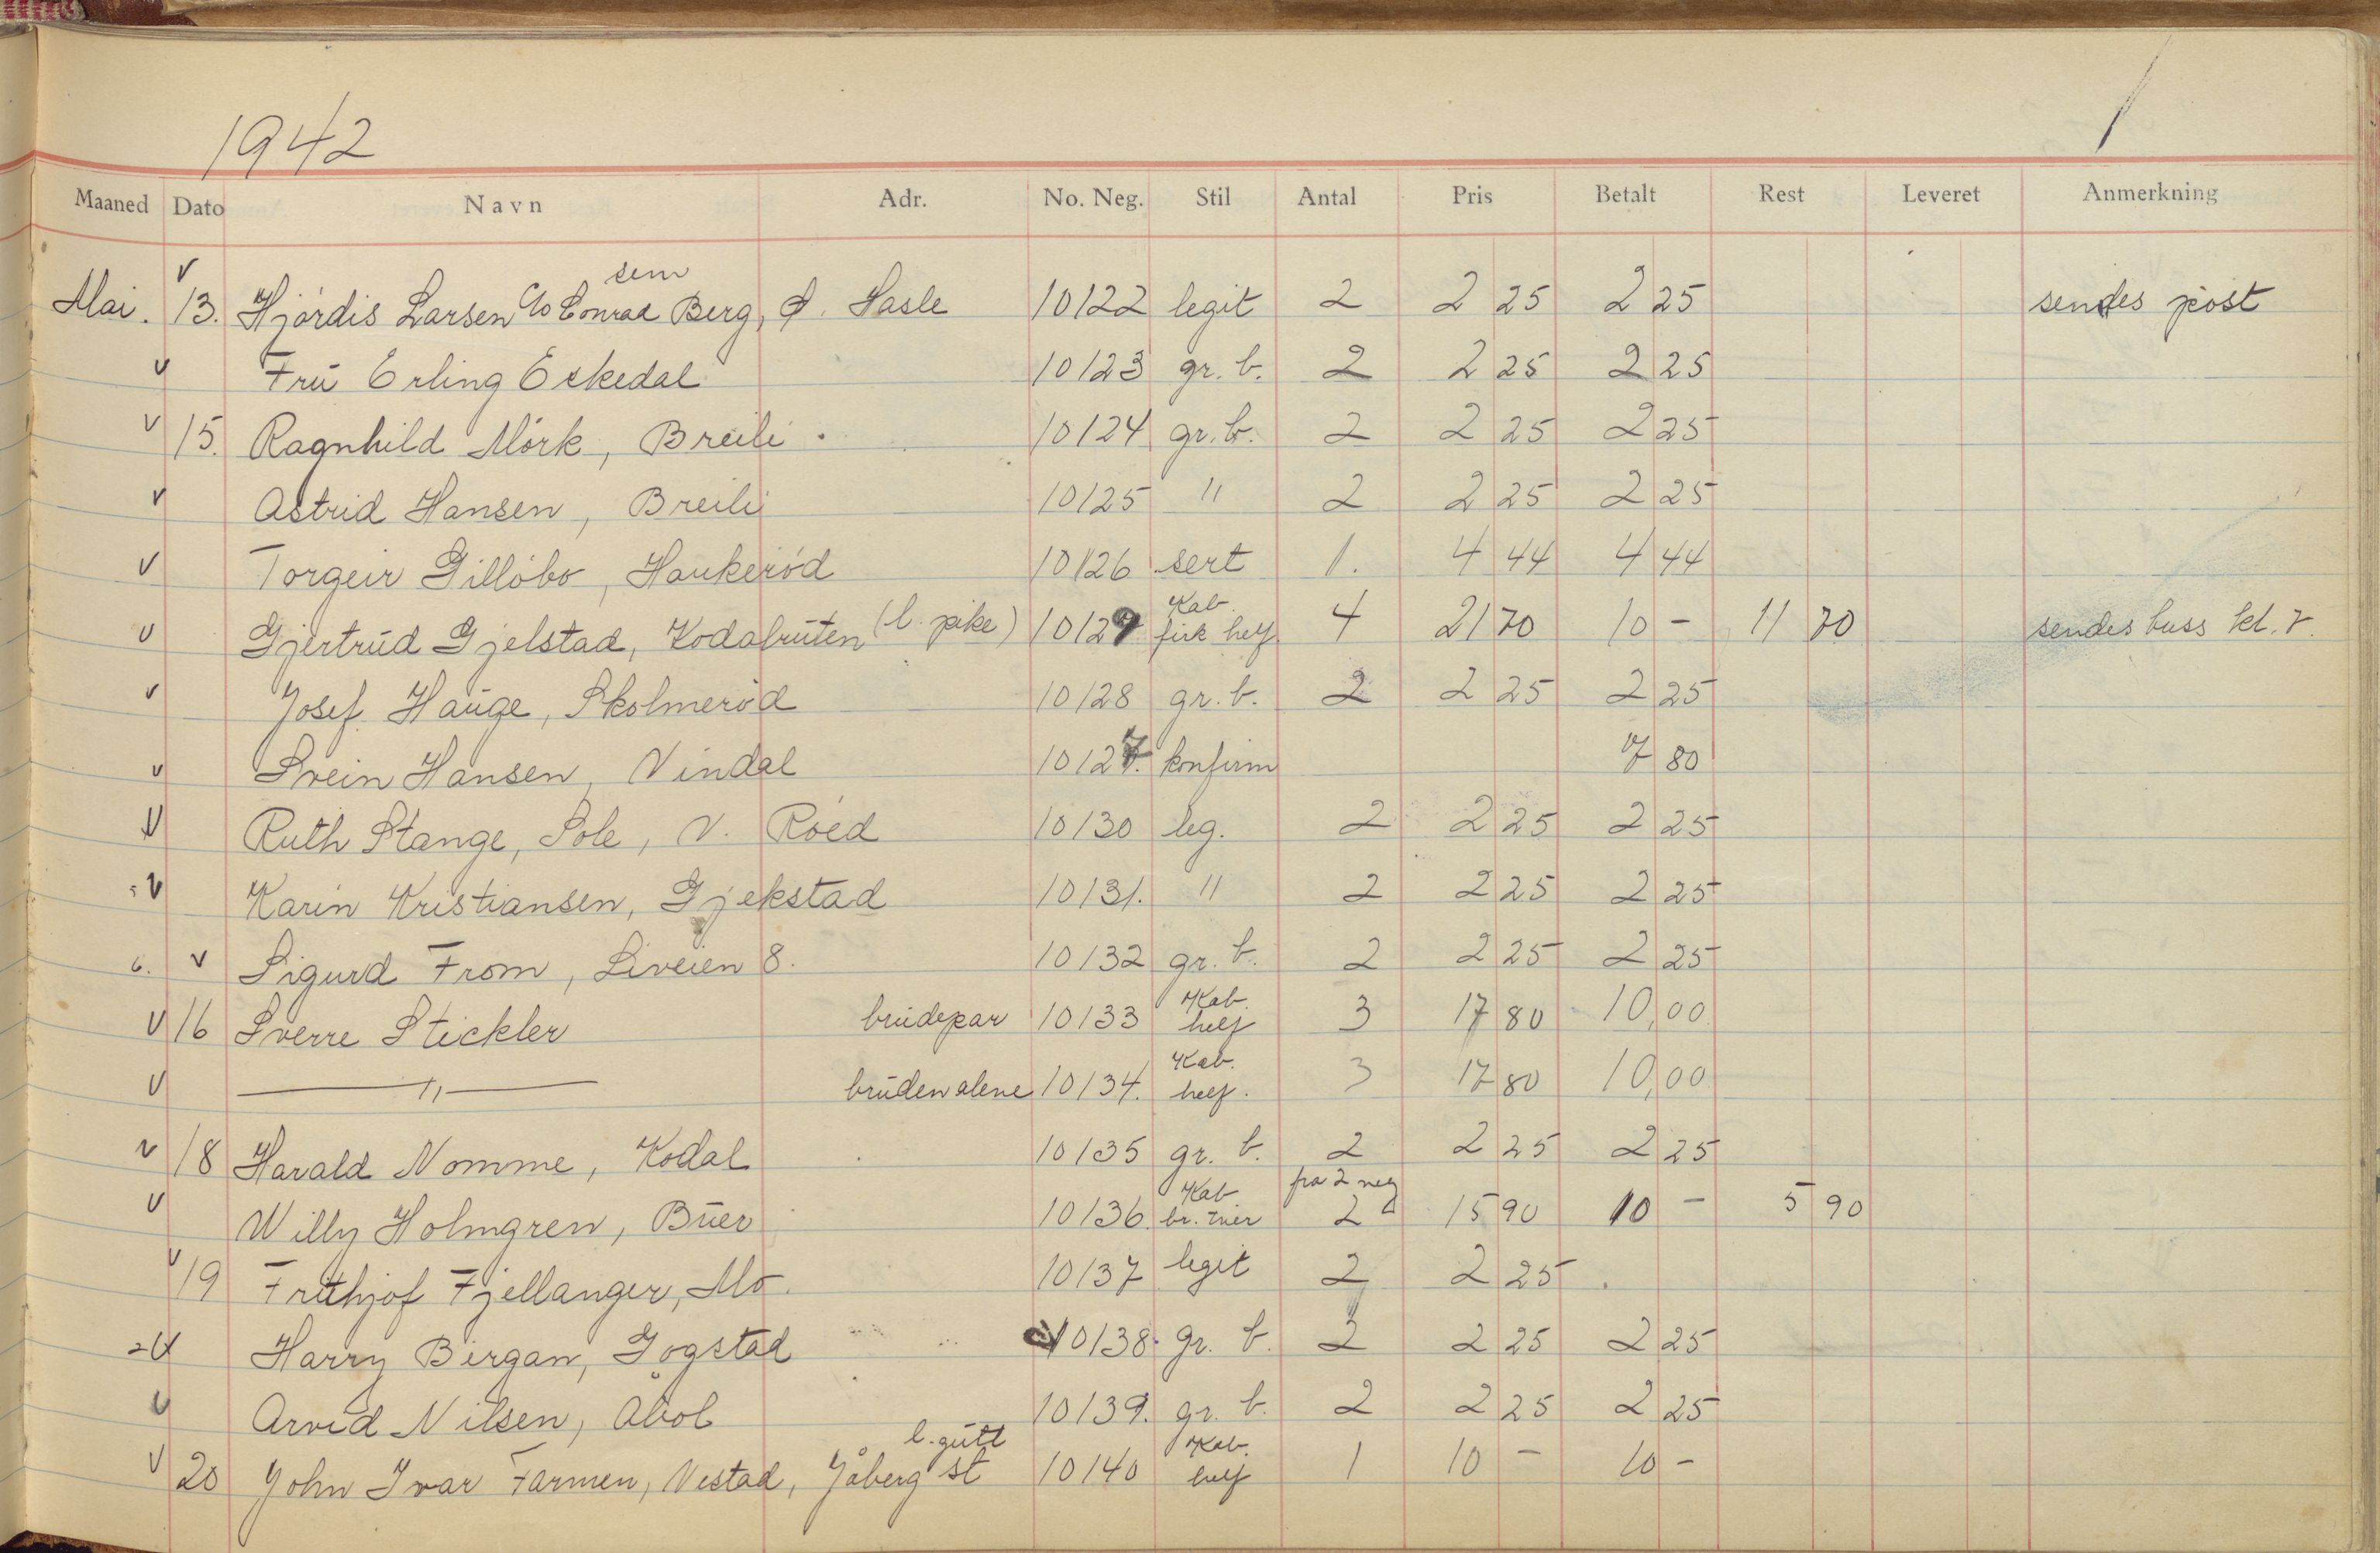 1942
Maaned Dato Navn Adr. No. Neg. Stil Antal Pris Betalt Rest Leveret Anmerkning
sem
Mai. V 13. Hjördis Larsen c/o Conrad Berg, Hasle 10122 legit 2 2 25 2 25 sendes post
V Frū Erling Eskedal 10123 gr. b. 2 2 25 2 25
V 15. Ragnhild Mörk, Breili 10124 gr. b. 2 2 25 2 25
V Astrid Hansen, Breili 10125 " 2 2 25 2 25
V Torgeir Gillöbo, Haukeröd 10126 sert 1. 4 44 4 44
Kab.
V Gjertrūd Gjelstad, Kodalrūten (l. pike) 10129 helf 4 21 70 10 - 11 70 sendes buss kl. 7.
V Josef Haūge, Skolmeröd 10128 gr. b. 2 2 25 2 25
V Svein Hansen, Vindal 10127. konfirm 7 80
V Ruth Stange, Sole, N. Röed 10130 leg. 2 2 25 2 25
V Karin Kristiansen, Gjekstad 10131. " 2 2 25 2 25
6. V Sigurd From, Liveien 8. 10132 gr. b. 2 2 25 2 25
Kab.
V 16 Sverre Stickler brūdepar 10133 helf 3 17 80 10,00
Kab.
V —"— brūden alene 10134. helf. 3 17 80 10,00
V 18 Harald Nomme, Kodal 10135 gr. b. 2 2 25 2 25
Kab fra 2 neg
V Willy Holmgren, Būer 10136. br. vier 2 15 90 10 - 5 90
V 19 Frithjof Fjellanger, Mo. 10137 legit 2 2 25
V Harry Bergan, Gogstad 10138. gr. b. 2 2 25 2 25
V Arvid Nilsen, Abol 10139. gr. b. 2 2 25 2 25
l. gūtt Kab.
V 20 John Ivar Farmen, Vestad, Jåberg st 10140 helf 1 10 - 10 -